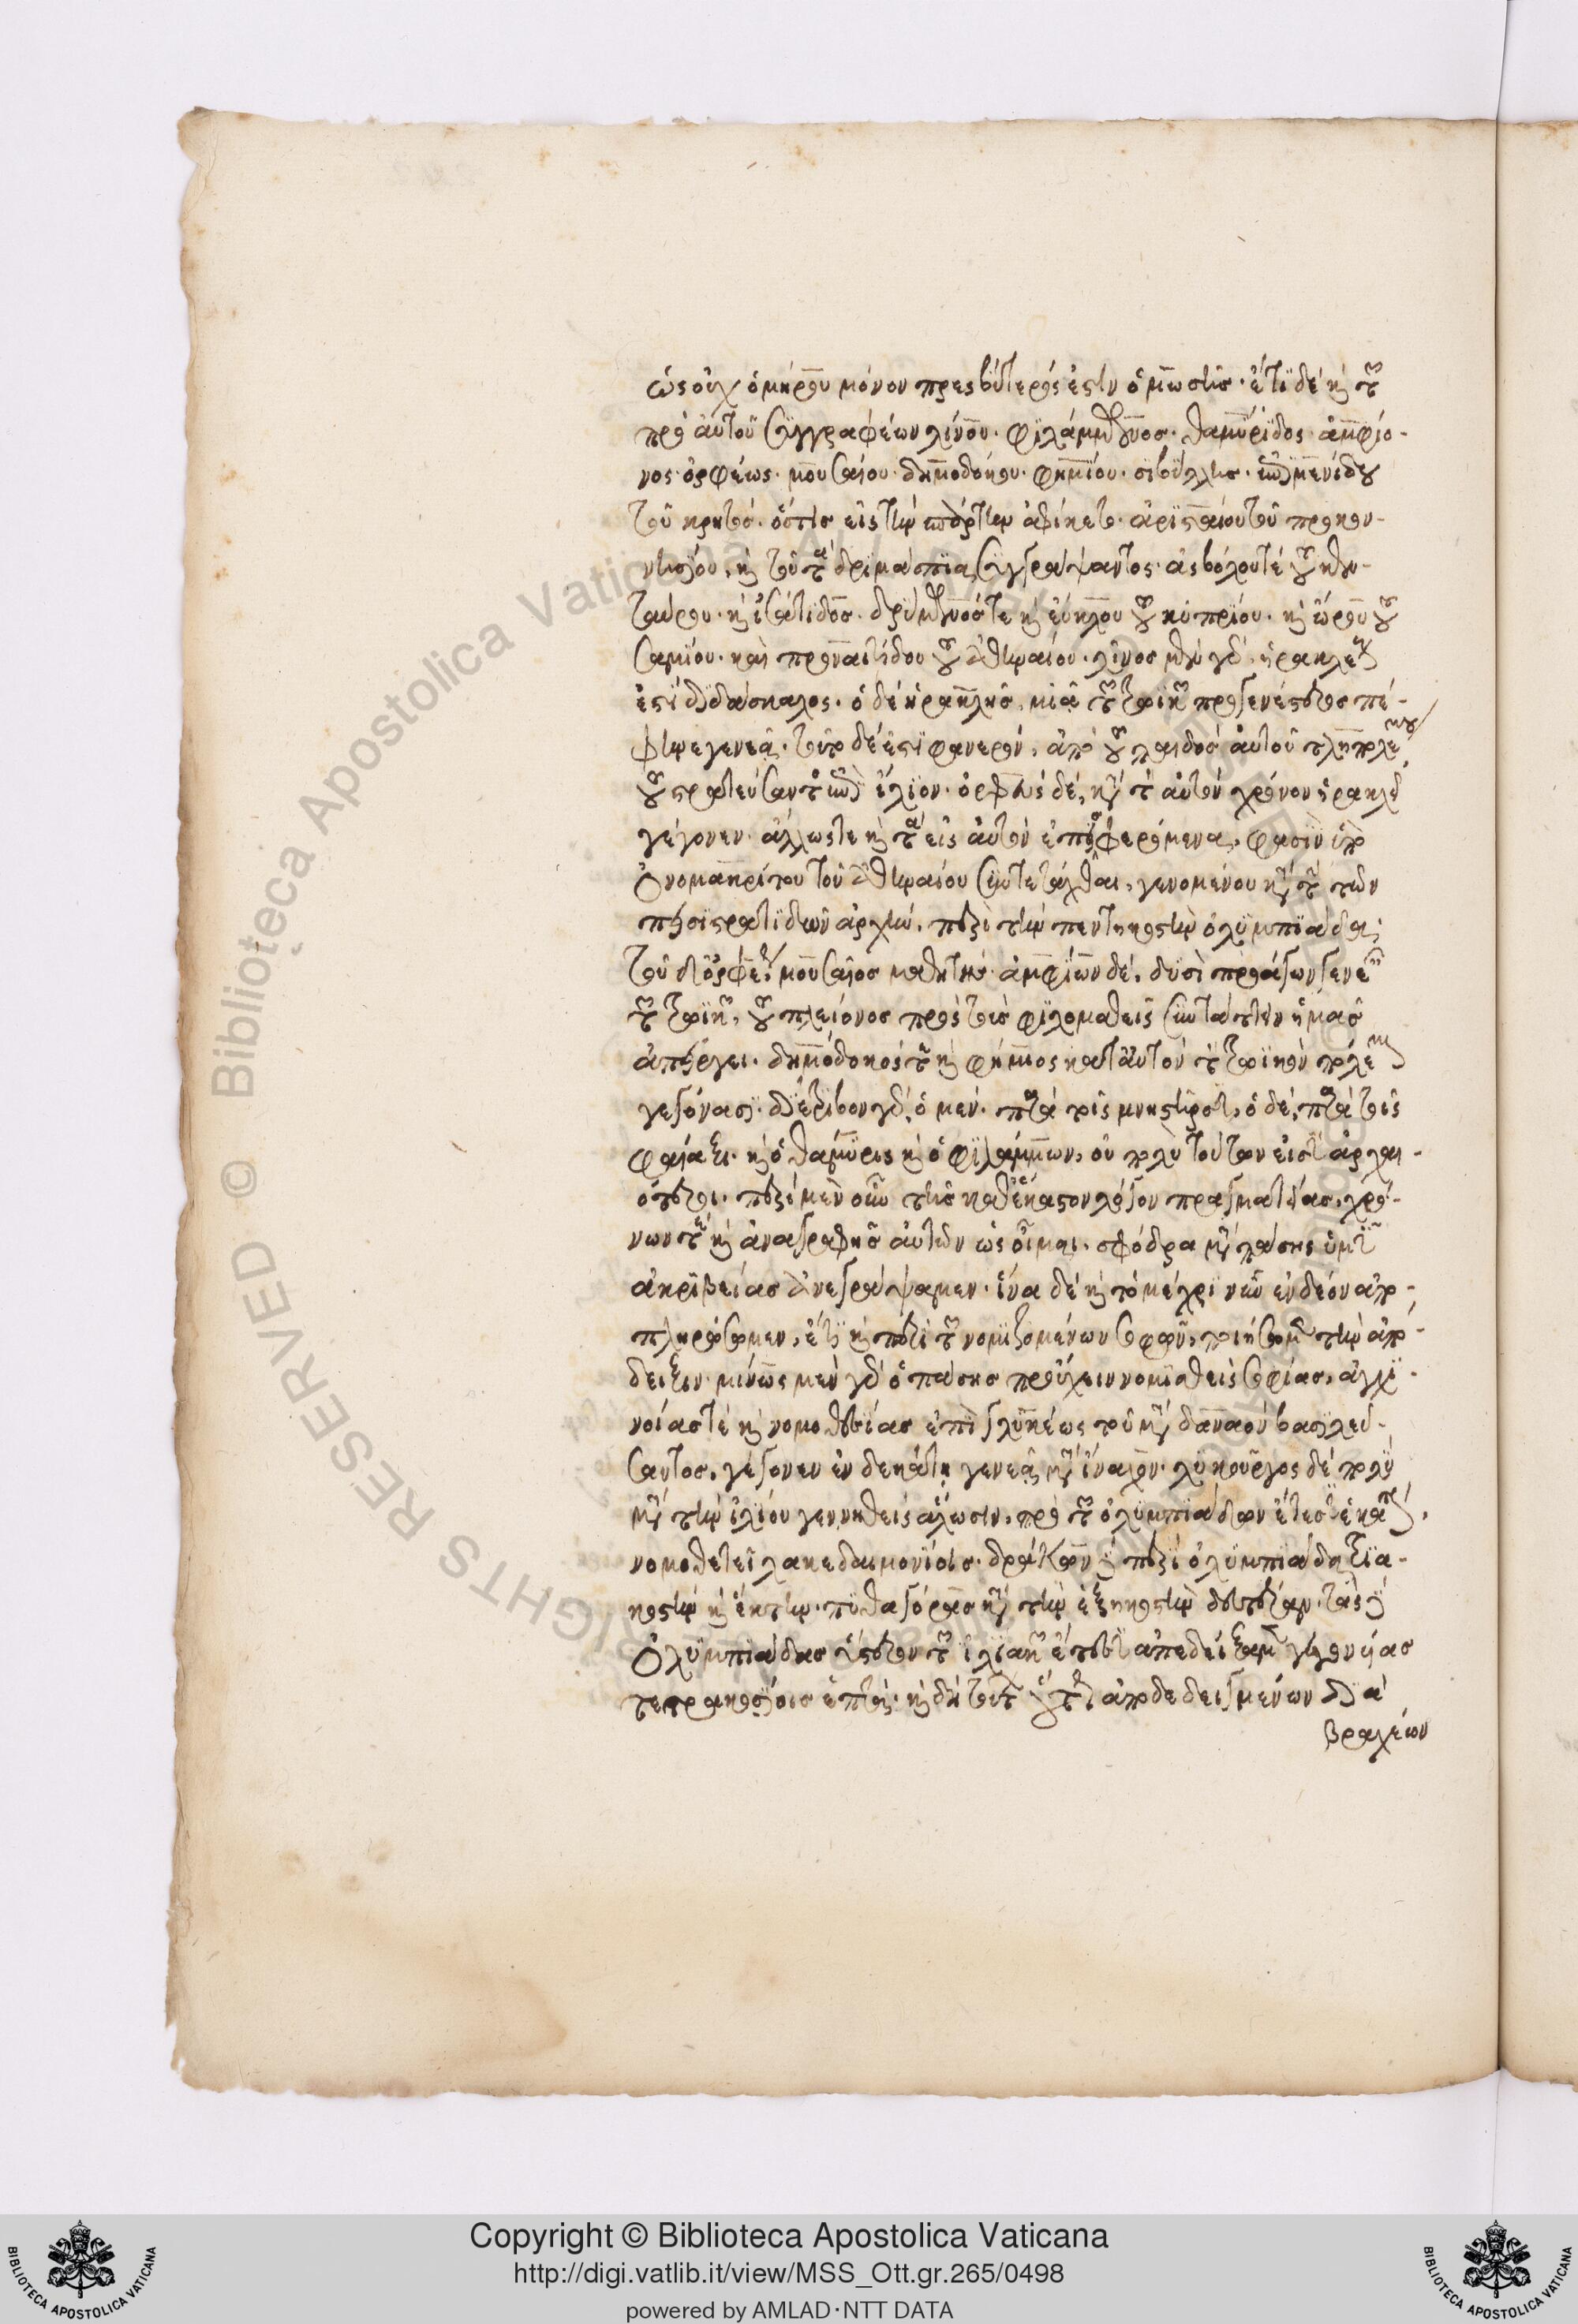 ὡς οὐχ ὁμήρου μόνον πρεσβύτερός ἐστιν ὁ μωσῆς· ἔτι δὲ καὶ τῶν
πρὸ αὐτοῦ συγγραφέων λίνου· φιλάμμωνος· θαμύριδος· ἀμφίο-
νος· ὀρφέως· μουσαίου· δημοδόκου· φημίου· σιβύλλης· ἐπιμενίδου
τοῦ κρητός· ὅστις εἰς τὴν σπάρτην ἀφίκετο· ἀρισταίου τοῦ προκον-
νησίου, καὶ τοῦ τὰ ἀριμάσπια συγγράψαντος· ἀσβόλου τε τοῦ κεν-
ταύρου· καὶ ἰσάτιδος· δρύμωνός τε καὶ εὔκλου τοῦ κυπρίου· καὶ ὥρου τοῦ
σαμίου· καὶ προναπίδου τοῦ ἀθηναίου· λίνος μὲν γὰρ ἡρακλέους
ἐστὶ διδάσκαλος· ὁ δὲ ἡρακλῆς, μιᾷ τῶν τρωϊκῶν προγενέστερος πέ-
φηνε γενεᾷ· τοῦτο δέ ἐστι φανερόν, ἀπὸ τοῦ παιδὸς αὐτοῦ τληπολέμου
τοῦ στρατεύσαντος ἐπὶ ἴλιον· ὀρφεὺς δέ, κατὰ τὸν αὐτὸν χρόνον ἡρακλεῖ
γέγονεν· ἄλλως τε καὶ τὰ εἰς αὐτὸν ἐπιφερόμενα, φασὶν ὑπὸ
Ὀνομακρίτου τοῦ ἀθηναίου συντετάχθαι, γενομένου κατὰ τὴν τῶν
πεισιστρατιδῶν ἀρχήν, περὶ τὴν πεντηκοστὴν ὀλυμπιάδα·
τοῦ δὲ ὀρφέως μουσαῖος μαθητής· ἀμφίων δέ, δυσὶ προάγων γενεαῖς
τῶν τρωϊκῶν, τοῦ πλείονος πρὸς τοὺς φιλομαθεῖς συντάττειν ἡμᾶς
ἀπείργει· δημόδοκός τε καὶ φήμιος κατ' αὐτὸν τὸν τρωϊκὸν πόλεμον
γεγόνασι· διέτριβον γὰρ, ὁ μὲν παρὰ τοῖς μνηστῆρσι, ὁ δὲ παρὰ τοῖς
φαίαξι· καὶ ὁ θάμυρις καὶ ὁ φιλάμμων, οὐ πολὺ τούτων εἰσὶν ἀρχαι-
ότεροι· περὶ μὲν οὖν τῆς καθ' ἕκαστον λόγον πραγματείας, χρό-
νων τε καὶ ἀναγραφῆς αὐτῶν ὡς οἶμαι, σφόδρα μετὰ πάσης ὑμῖν
ἀκριβείας ἀνεγράψαμεν· ἵνα δὲ καὶ τὸ μέχρι νῦν ἐνδέον ἀπο-
πληρώσωμεν, ἔτι καὶ περὶ τῶν νομιζομένων σοφῶν, ποιήσομαι τὴν ἀπό-
δειξιν· μίνως μὲν γὰρ ὁ πάσης προὔχειν νομισθεὶς σοφίας, ἀγχι-
νοίας τε καὶ νομοθεσίας ἐπὶ λυγκέως τοῦ μετὰ δαναὸν βασιλεύ-
σαντος, γέγονεν ἐν δεκάτῃ γενεᾷ μετὰ ἴναχον· λυκοῦργος δὲ πολὺ
μετὰ τὴν ἰλίου γεννηθεὶς ἅλωσιν, πρὸ τῶν ὀλυμπιάδων ἔτεσιν ἑκατόν,
νομοθετεῖ λακεδαιμονίοις· δράκων δὲ περὶ ὀλυμπιάδα τρια-
κοστὴν καὶ ἕκτην· πυθαγόρας κατὰ τὴν ἑξηκοστὴν δευτέραν· τὰς δὲ
Ὀλυμπιάδας ὕστερον τῶν ἰλιακῶν ἔτεσιν ἀπεδείξαμεν γεγονυίας
τετρακοσίοις ἑπτά· καὶ δὴ τούτων οὕτως ἀποδεδειγμένων διὰ
βραχέων